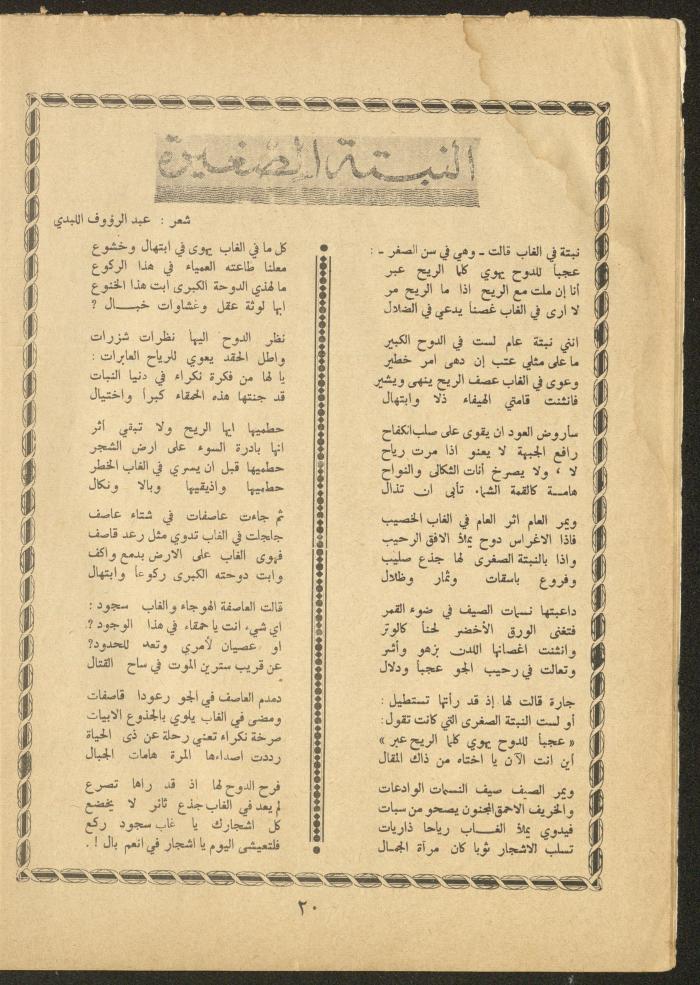 النبتة الصغيرة
شعر : عبد الرؤوف اللبدي
نبتة في الغاب قالت ـ وهي في سن الصغر ـ :
عجباً للدوح يهوي كلما الريح عبر
أنا إن ملت مع الريح اذا ما الريح مر
لا ارى في الغاب غصنا يدعي في الضلال
انني نبتة عام لست في الدوح الكبير
ما على مثلي عتب إن دهى امر خطير
وعوى في الغاب عصف الريح ينهى ويشير
فانثنت قامتي الهيفاء ذلا وابتهال
سأروض العود ان يقوى على صلب الكفاح
رافع الجبهة لا يعنو اذا مرت رياح
لا ، ولا يصرخ أنات الثكالى والنواح
هامـة كالقمة الشماء تأبى ان تذال
ويمر العام اثر العام في الغاب الخصيب
فاذا الاغراس دوح يملأ الافق الرحيب
واذا بالنبتة الصغرى لها جذع صليب
وفروع باسقات وثمار وظلال
داعبتها نسمات الصيف في ضوء القمر
فتغنى الورق الأخضر لحناً كالوتر
وانثنت اغصانها اللدن بزهو وأشر
وتعالت في رحيب الجو عجباً ودلال
جارة قالت لها إذ قد رأتها تستطيل :
أو لست النبتة الصغرى التي كانت تقول :
« عجباً للدوح يهوي كلما الريح عبر »
أين انت الآن يا اختاه من ذاك المقال
ويمر الصيف صيف النسمات الوادعات
والخريف الاحمق المجنون يصحو من سبات
فيدوي يملأ الغـــاب رياحا ذاريات
تسلب الاشجار ثوبا كان مرآة الجمال
كل ما في الغاب يهوى في ابتهال وخشوع
معلنا طاعته العمياء في هذا الركوع
ما لهذي الدوحة الكبرى أبت هذا الخنوع
ابها لوثة عقل وغشاوات خبـــال ؟
نظر الدوح اليها نظرات شزرات
واطل الحقد يعوي للرياح العابرات :
يا لها من فكرة نكراء في دنيا النبات
قد جنتها هذه الحمقاء كبراً واختيال
حطميها ايها الريح ولا تبقي أثر
انها بادرة السوء على ارض الشجر
حطميها قبل ان يسري في الغاب الخطر
حطميها واذيقيها وبالا ونكال
ثم جاءت عاصفات في شتاء عاصف
جلجلت في الغاب تدوي مثل رعد قاصف
فهوى الغاب على الارض بدمع واكف
وابت دوحته الكبرى ركوعا وابتهال
قالت العاصفة الهوجاء والغاب سجود :
اي شيء انت يا حمقاء في هذا الوجود ؟
او عصيان لأمري وتعد للحدود؟
عن قريب سترين الموت في ساح القتال
دمدم العاصف في الجو رعودا قاصفات
ومضى في الغاب يلوي بالجذوع الابيات
صرخة نكراء تعني رحلة عن ذى الحياة
رددت اصداءها المرة هامات الجبال
فرح الدوح لها اذ قد راها تصرع
لم يعد في الغاب جذع ثائر لا يخضع
كل اشجارك يا غاب سجود ركع
فلتعيشى اليوم يا اشجار في انعم بال ! .
٢٠